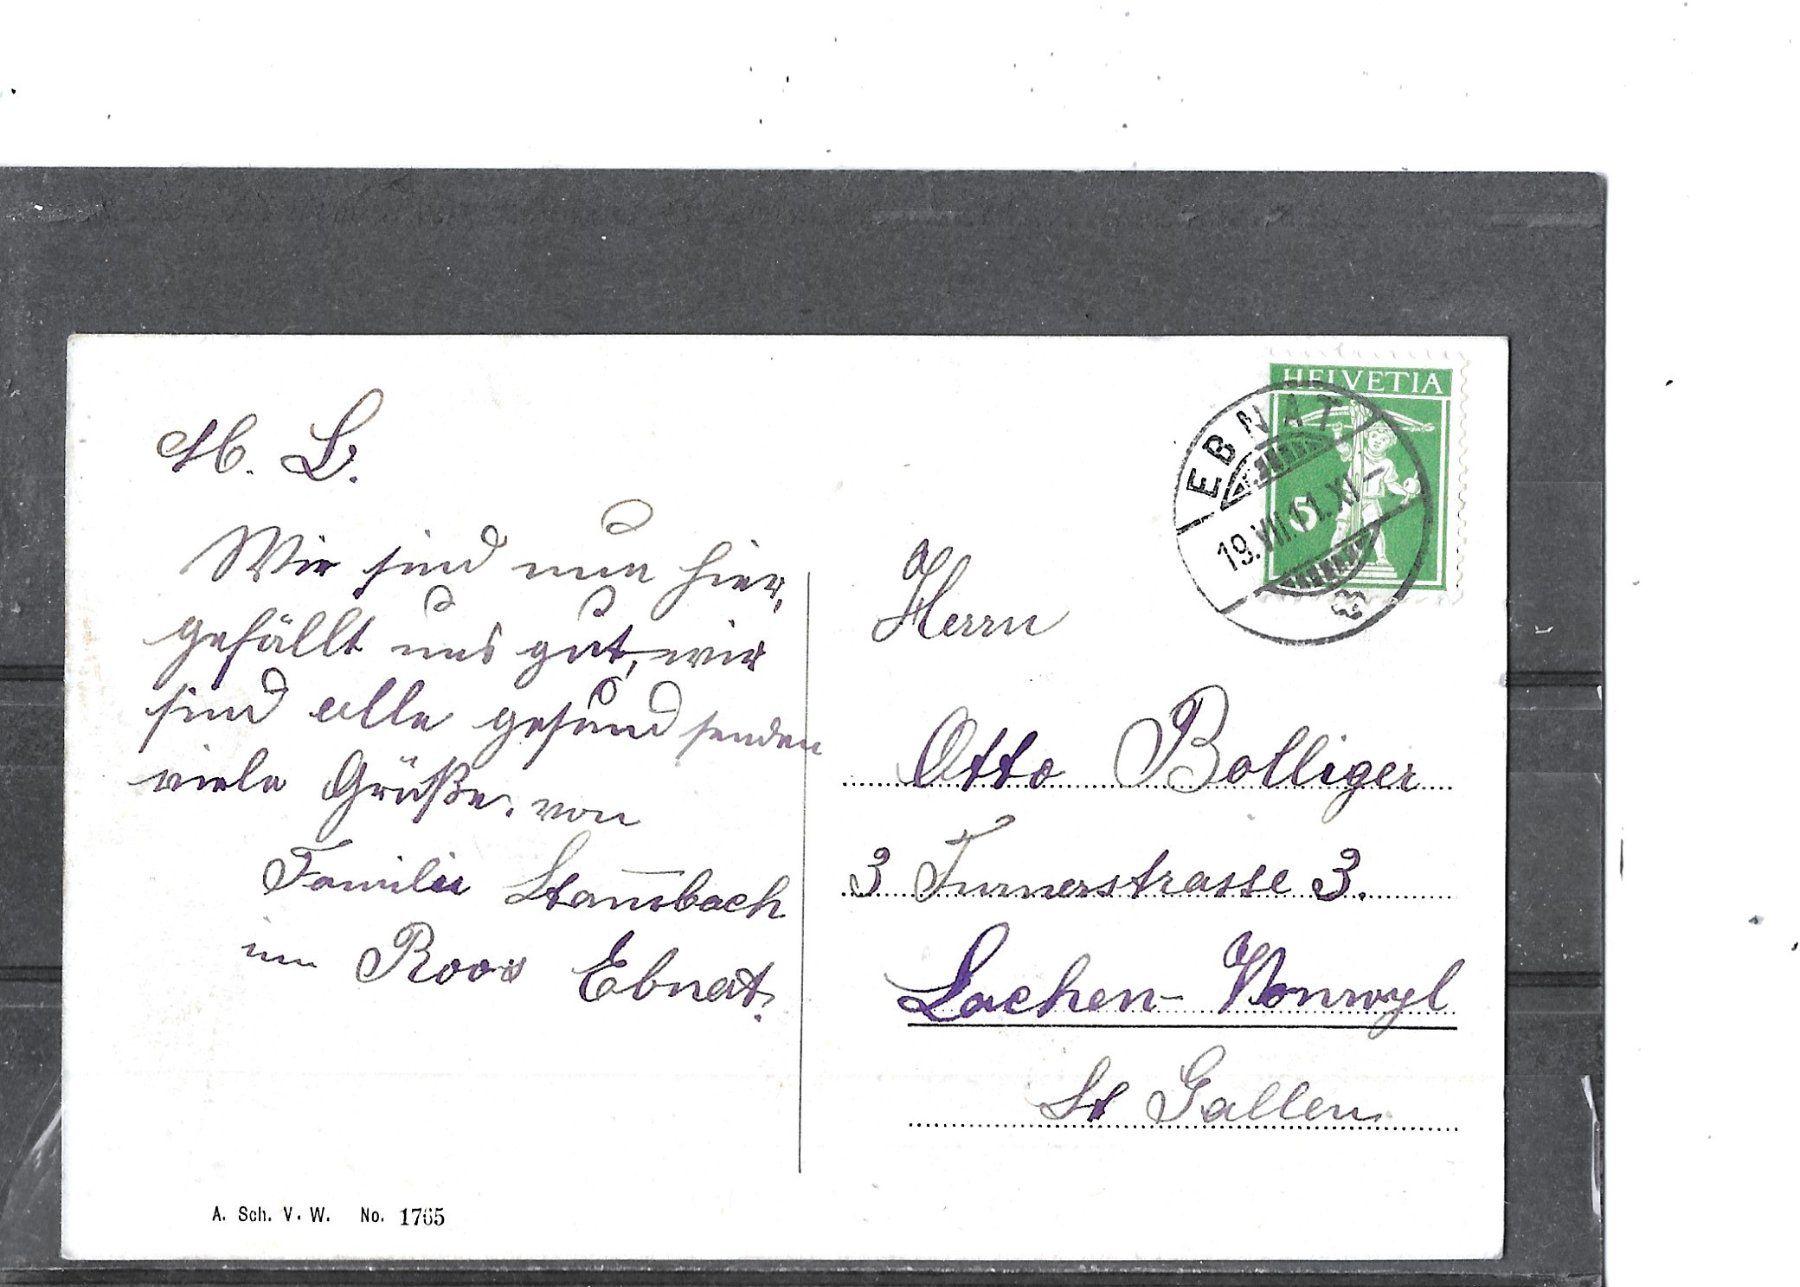 M. L.
Wir sind nun hier,
gefällt uns gut, wir
sind alle gesund senden
viele Grüße. von
Familie Stam̅bach
im Roos Ebnat.
HELVETIA
5
EBNAT
19.VII.11.XI–
Herrn
Otto Bolliger
3 Turnerstrasse 3.
Lachen-Vonwyl
St Gallen
A. Sch. V. W. No. 1765